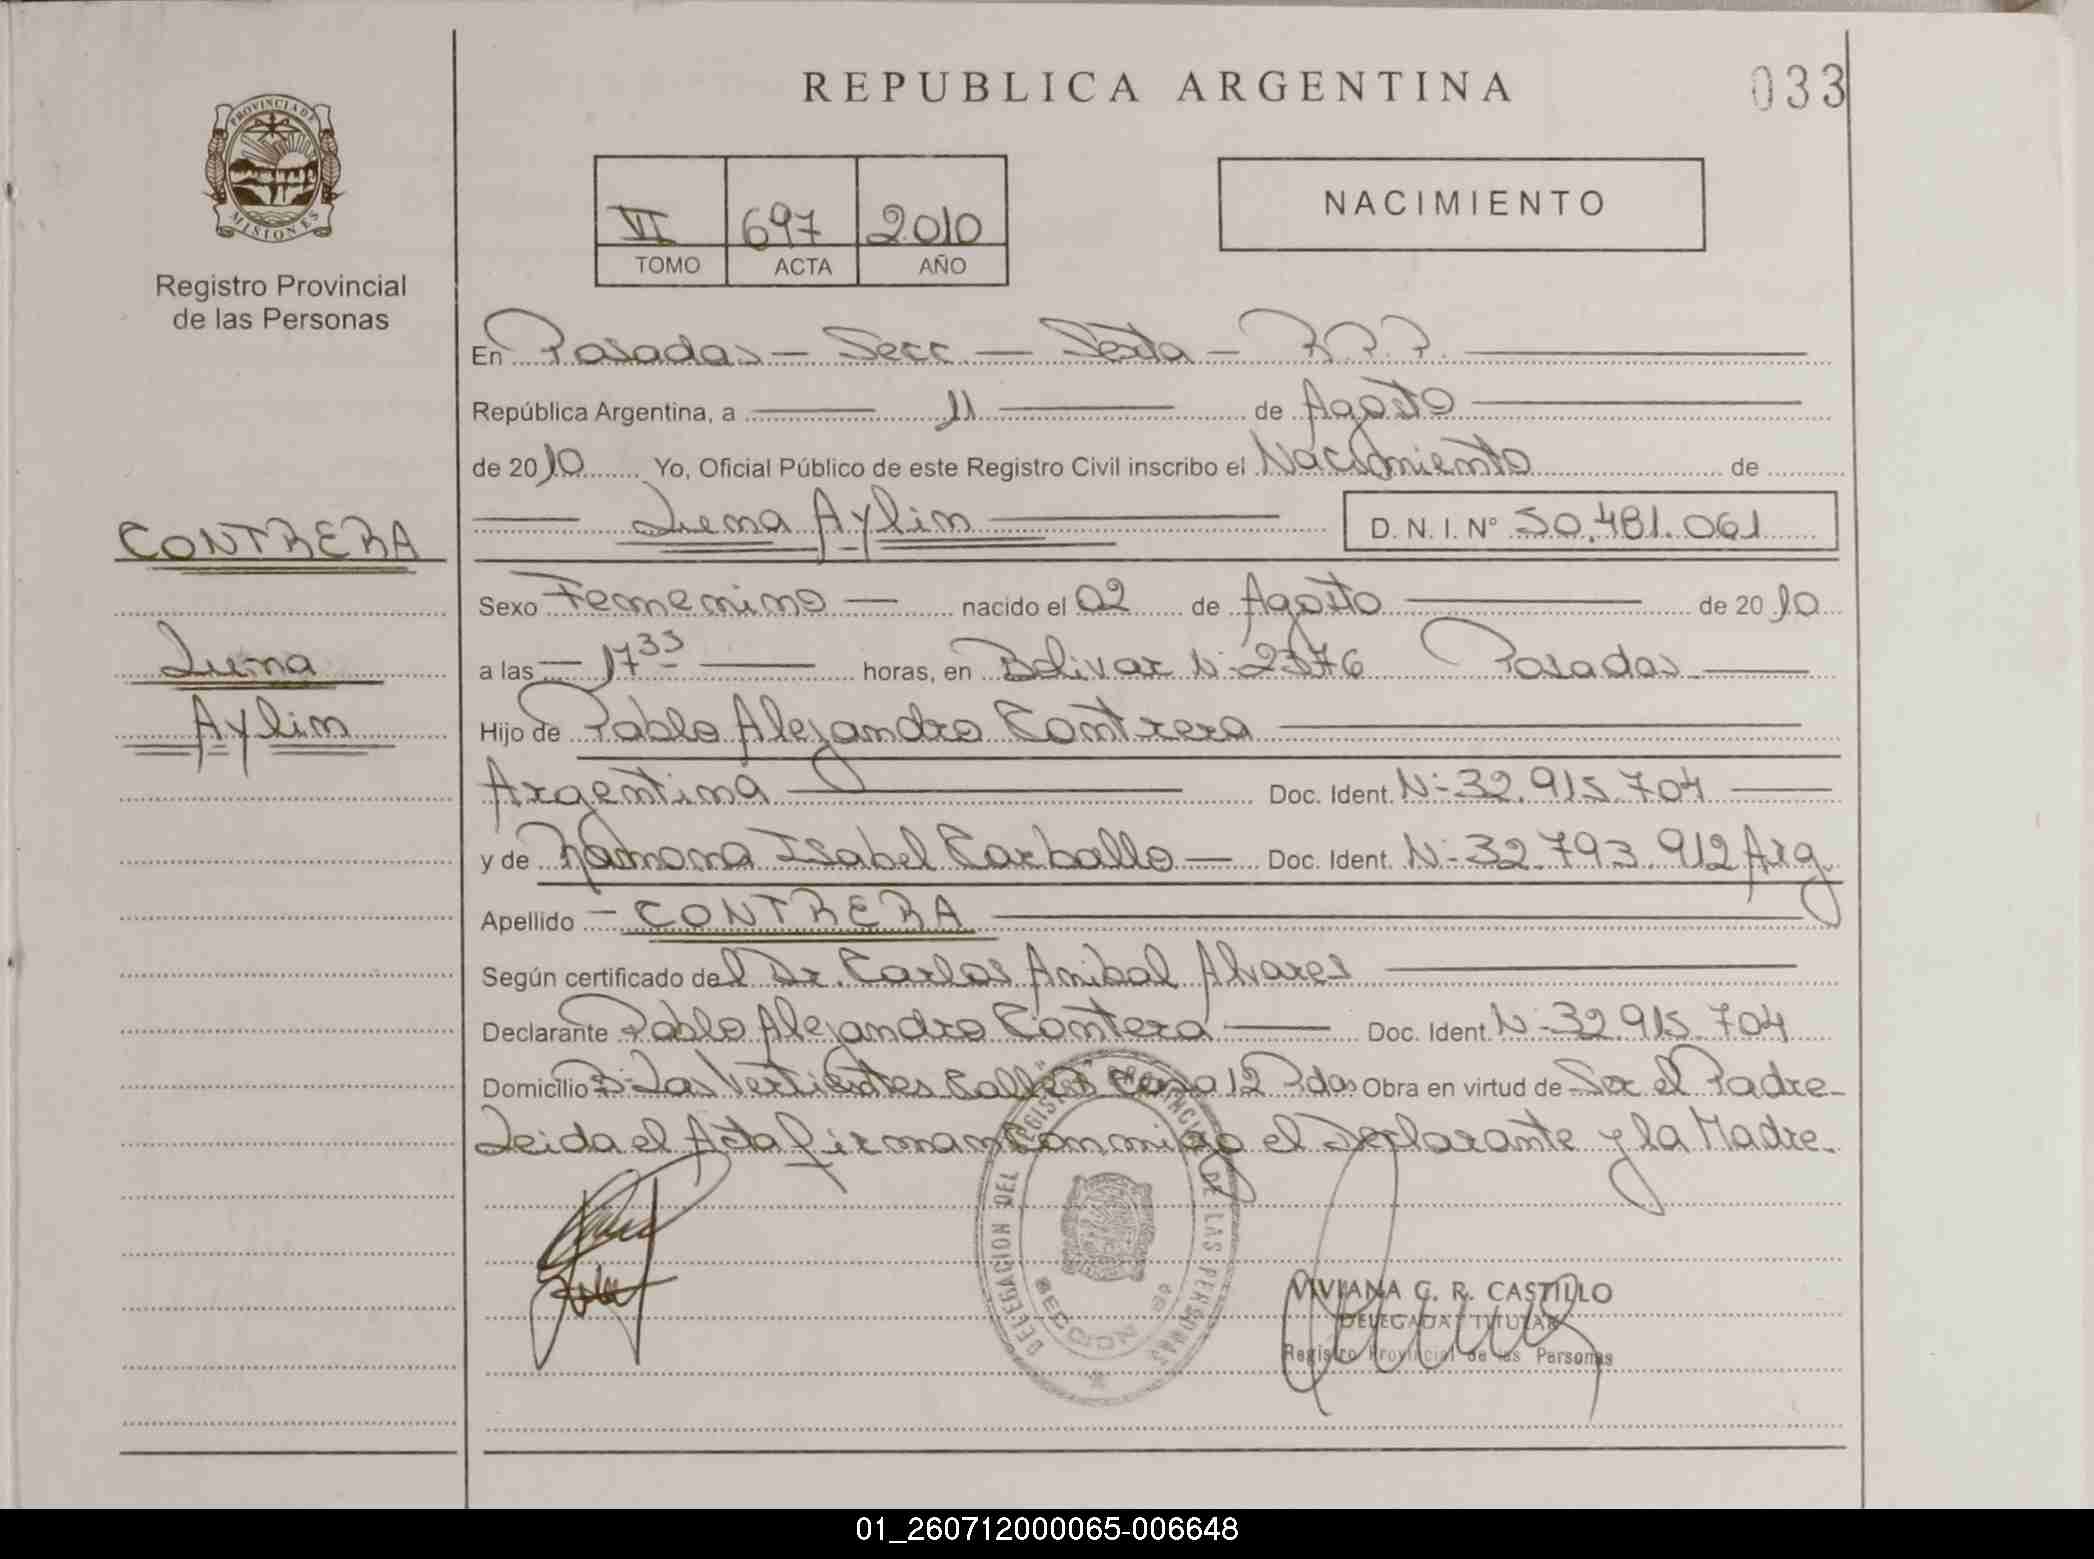 REPUBLICA ARGENTINA
033
PROVINCIA DE
MISIONES
Registro Provincial
de las Personas
VI 697 2010
TOMO ACTA AÑO
NACIMIENTO
En Posadas - Secc - Sexta - R.P.P.
República Argentina, a 11 de Agosto
de 2010 Yo, Oficial Público de este Registro Civil inscribo el Nacimiento de
Luna Aylin D. N. I. N° 50.481.061
CONTRERA
Luna
Aylin
Sexo Femenino nacido el 02 de Agosto de 2010
a las 17 35 horas, en Bolivar N- 2376 Posadas
Hijo de Pablo Alejandro Contrera
Argentina Doc. Ident. N- 32.915.704
y de Ramona Isabel Carballo Doc. Ident. N- 32.793.912 Arg
Apellido CONTRERA
Según certificado del Dr. Carlos Anibal Alvares
Declarante Pablo Alejandro Contera Doc. Ident. N- 32.915.704
Domicilio B- Las Vertientes Calle Casa 12 Pdas Obra en virtud de Ser el Padre
Leida el Acta firman Conmigo el Declarante y la Madre.
DELEGACION DEL REGISTRO PROVINCIAL DE LAS PERSONAS
SECCION
VIVIANA G. R. CASTILLO
DELEGADA TITULAR
Registro Provincial de las Personas
01_260712000065-006648